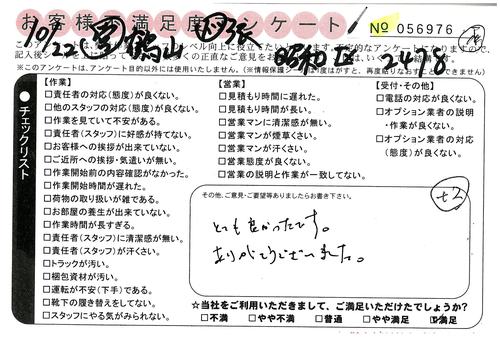 お客様満足度アンケート
No 056976
10/22 鶴山 昭和区 2418
※このアンケートは、アンケート目的以外には使用いたしません。
チェックリスト
【作業】
□責任者の対応(態度)が良くない。
□他のスタッフの対応(態度)が良くない。
□作業を見ていて不安がある。
□責任者(スタッフ)に好感が持てない。
□お客様への挨拶が出来ていない。
□ご近所への挨拶・気遣いが無い。
□作業開始前の内容確認がなかった。
□作業開始時間が遅れた。
□荷物の取り扱いが雑である。
□お部屋の養生が出来ていない。
□作業時間が長すぎる。
□責任者(スタッフ)に清潔感が無い。
□責任者(スタッフ)が汗くさい。
□トラックが汚い。
□梱包資材が汚い。
□運転が不安(下手)である。
□靴下の履き替えをしてない。
□スタッフにやる気がみられない。
【営業】
□見積もり時間に遅れた。
□見積もり時間が長い。
□営業マンに清潔感が無い。
□営業マンが煙草くさい。
□営業マンが汗くさい。
□営業態度が良くない。
□営業の説明と作業が一致してない。
【受付・その他】
□電話の対応が良くない。
□オプション業者の説明
・作業が良くない。
□オプション業者の対応
(態度)が良くない。
その他、ご意見・ご要望等ありましたらお書き下さい。
とても良かったです。
ありがとうございました。
☆当社をご利用いただきまして、ご満足いただけたでしょうか?
□不満 □やや不満 □普通 □やや満足 ☑満足